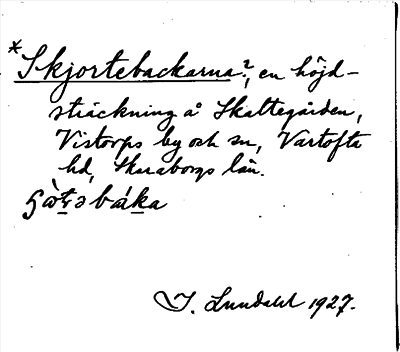 *Skjortebackarna?, en höjd-
sträckning å Skattegården,
Vistorps by och sn, Vartofta
hd, Skaraborgs län.
I. Lundahl 1927.